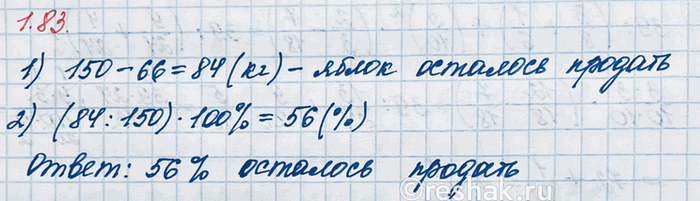 1.83.
1) 150 – 66 = 84 (кг) – яблок осталось продать
2) (84 : 150) · 100% = 56 (%)
Ответ: 56% осталось продать
©reshak.ru